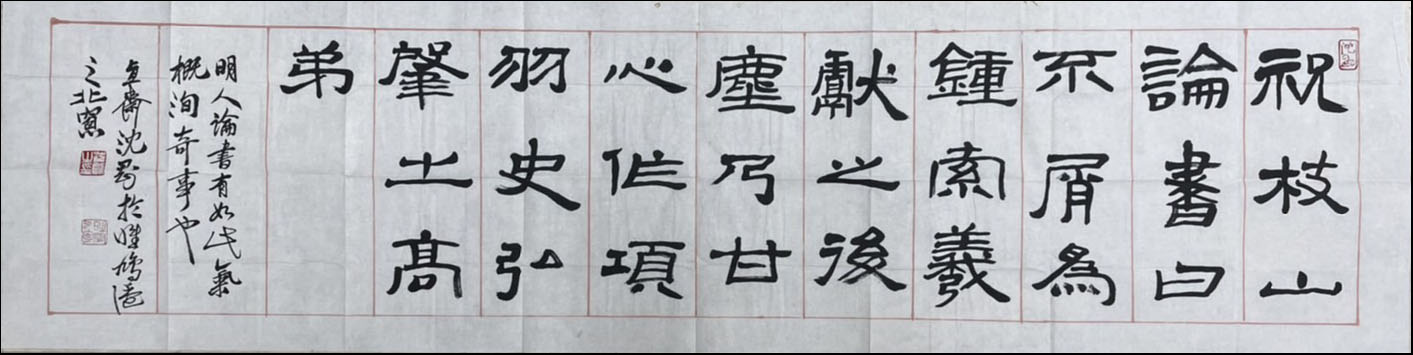 祝枝山
論書曰
不屑為
鍾索羲
獻之後
塵乃甘
心作項
羽史弘
肇土高
弟
明人論書有如此氣
概洵奇事也
直齋沈於鳩
之北窗